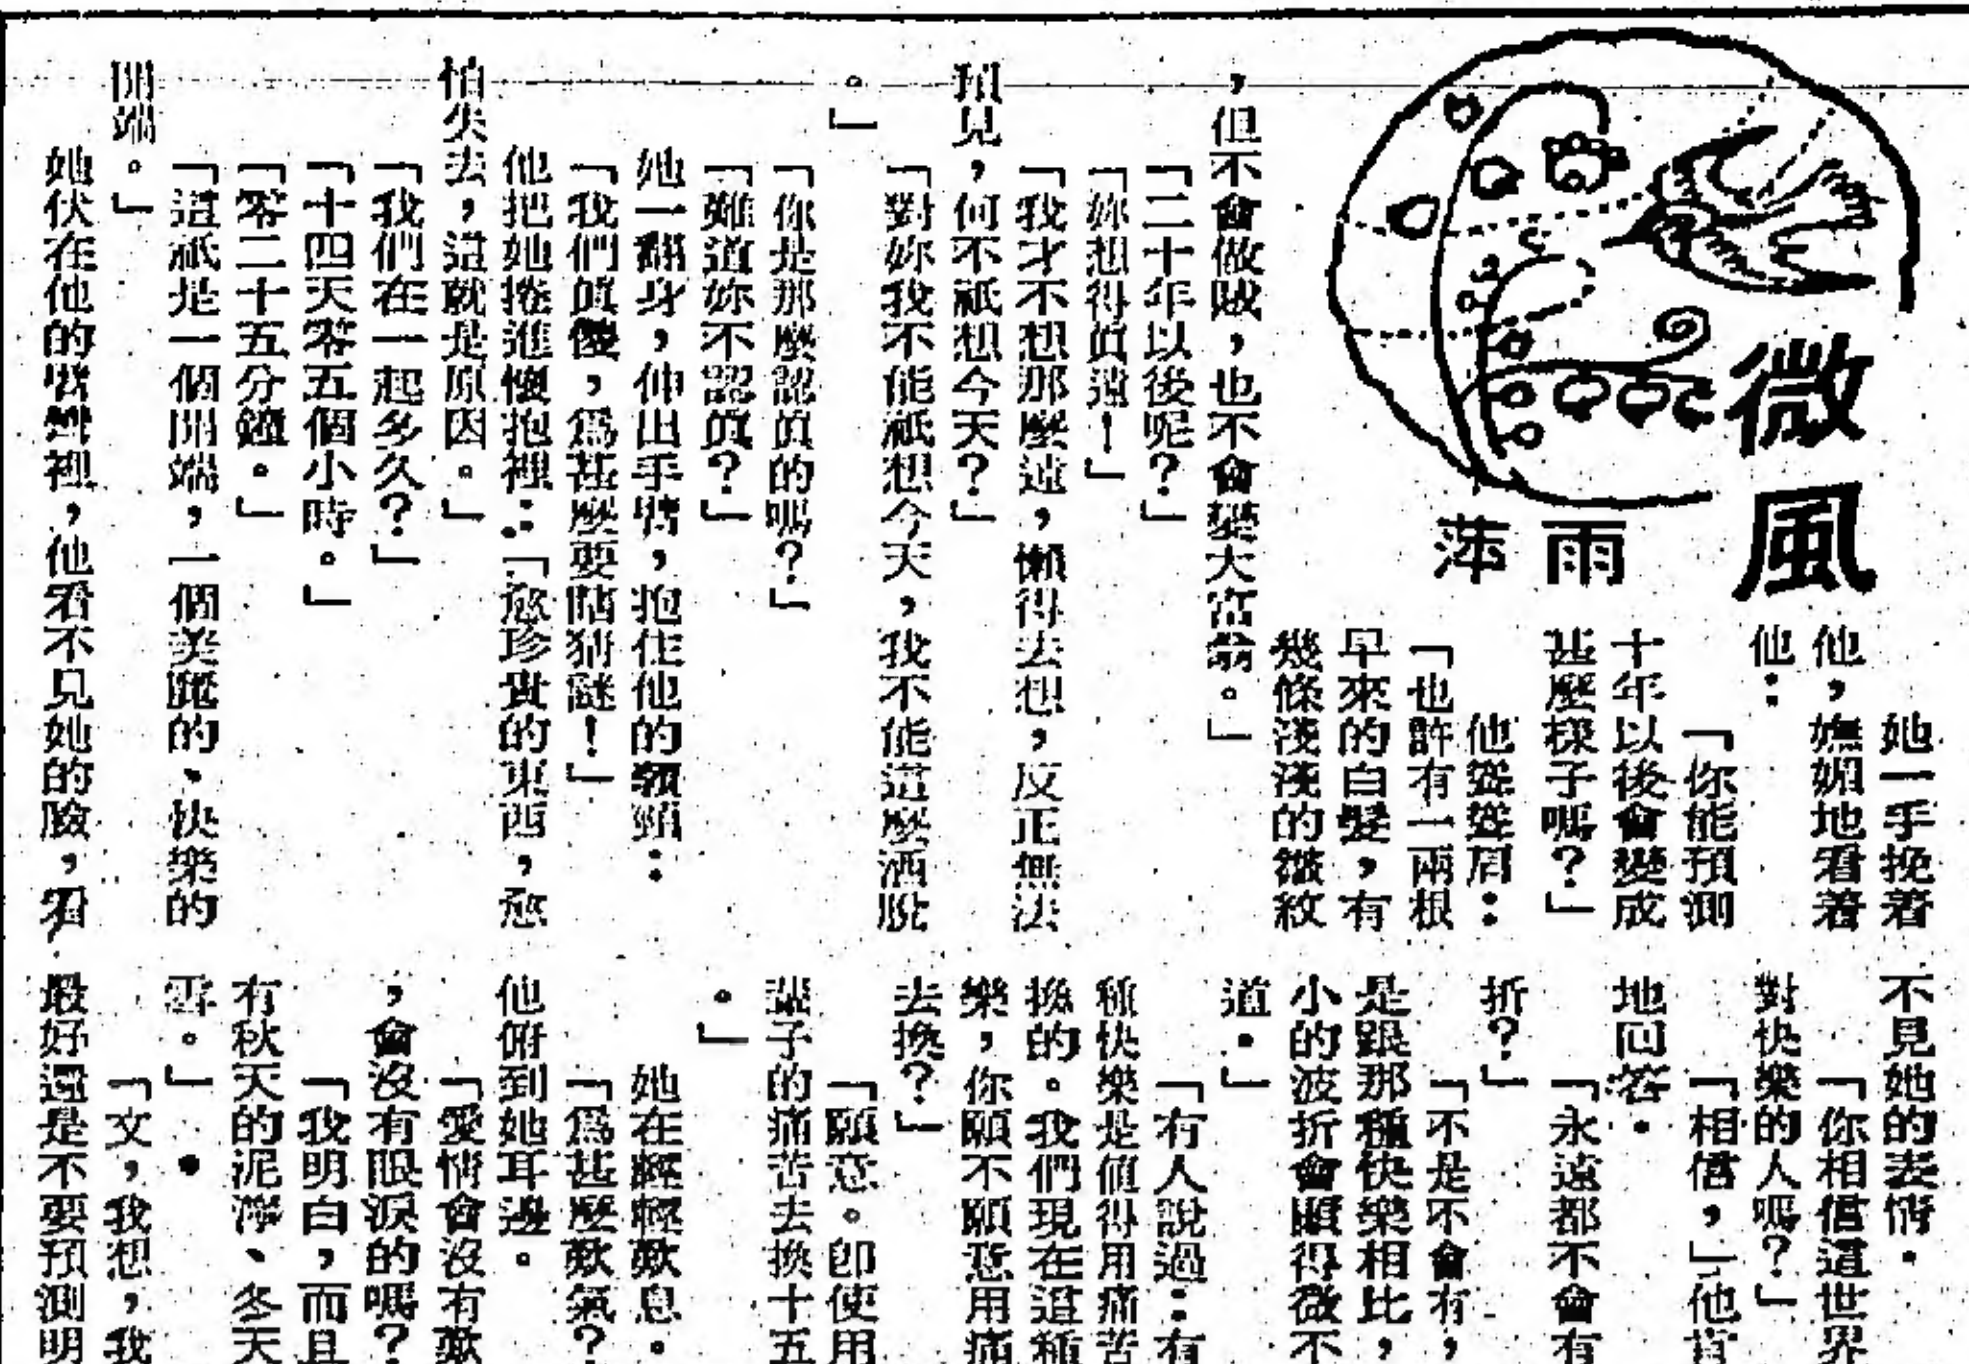 微風
雨萍
她一手挽着
他，嫵媚地看着
他：
「你能預測
十年以後會變成
甚麼樣子嗎？」
他聳聳肩：
「也許有一兩根
早來的白髮，有
幾條淺淺的皺紋
，但不會做賊，也不會變大富翁。」
「二十年以後呢？」
「妳想得真遠！」
「我才不想那麼遠，懶得去想，反正無法
預見，何不祇想今天？」
「對妳我不能祇想今天，我不能這麼洒脫
。」
「你是那麼認真的嗎？」
「難道妳不認真？」
她一翻身，伸出手臂，抱住他的頸：
「我們真傻，為甚麼要瞎猜謎！」
他把她捲進懷抱裡：「愈珍貴的東西，愈
怕失去，這就是原因。」
「我們在一起多久？」
「十四天零五個小時。」
「零二十五分鐘。」
「這祇是一個開端，一個美麗的、快樂的
開端。」
她伏在他的臂彎裡，他看不見她的臉，看
不見她的表情。
「你相信這世界
對快樂的人嗎？」
「相信，」他肯
地回答。
「永遠都不會有
折？」
「不是不會有，
是跟那種快樂相比，
小的波折會顯得微不
道。」
「有人說過：有
種快樂是值得用痛苦
換的。我們現在這種
樂，你願不願意用痛
去換？」
「願意。即使用
輩子的痛苦去換十五
。」
她在輕輕歎息。
「為甚麼歎氣？
他俯到她耳邊。
「愛情會沒有歎
，會沒有眼淚的嗎？
「我明白，而且
有秋天的泥濘、冬天
雪。」
「文，我想，我
最好還是不要預測明